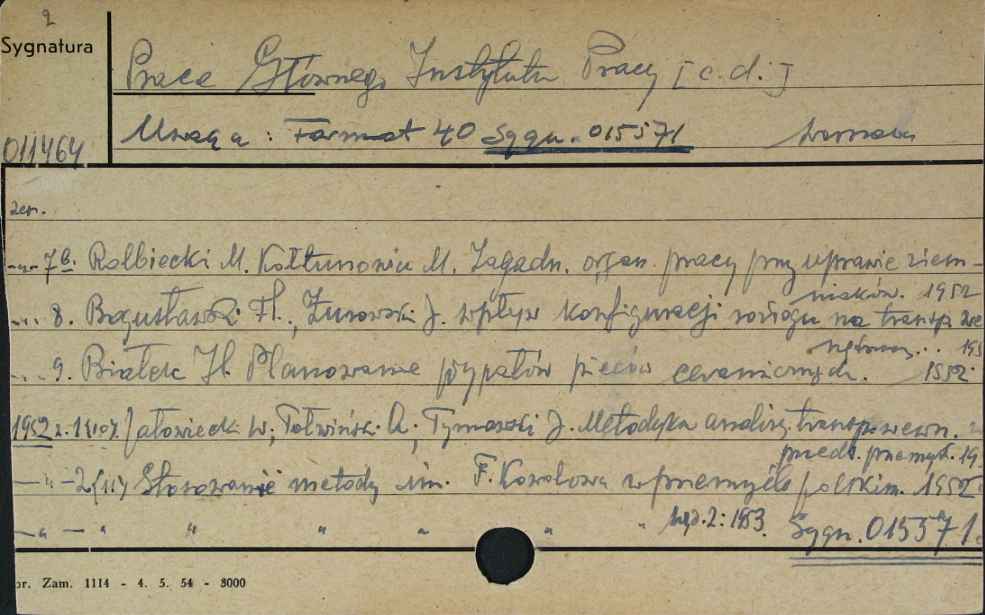 2
Sygnatura
Prace Głównego Instytutu Pracy [c.d.]
011464
Uwaga: Format 4O Sygn. 015571 Warszawa
zesz.
-"- 7 b. Rolbiecki M. Kołtunowicz M. Zagadn. organ. pracy przy uprawie ziem-
niaków. 1952
-"- 8. Bogusławski Fl., Żurowski J. Wpływ konfiguracji na transp. we
195
-"- 9. Białek H. Planowanie wypałów pieców ceramicznych. 1952
1952 z. 1(10). Jałowiecki W., Tołwiński A., Tymowski J. Metodyka analizy transp. wewn.
przeds. przemysł. 19
-"- 2(11) Stosowanie metody inż. F. Kowalowa w przemyśle polskim. 1952
-"- " " " " " wyd. 2: 1953. Sygn. 015571.
or. Zam. 1114 - 4. 5. 54 - 3000